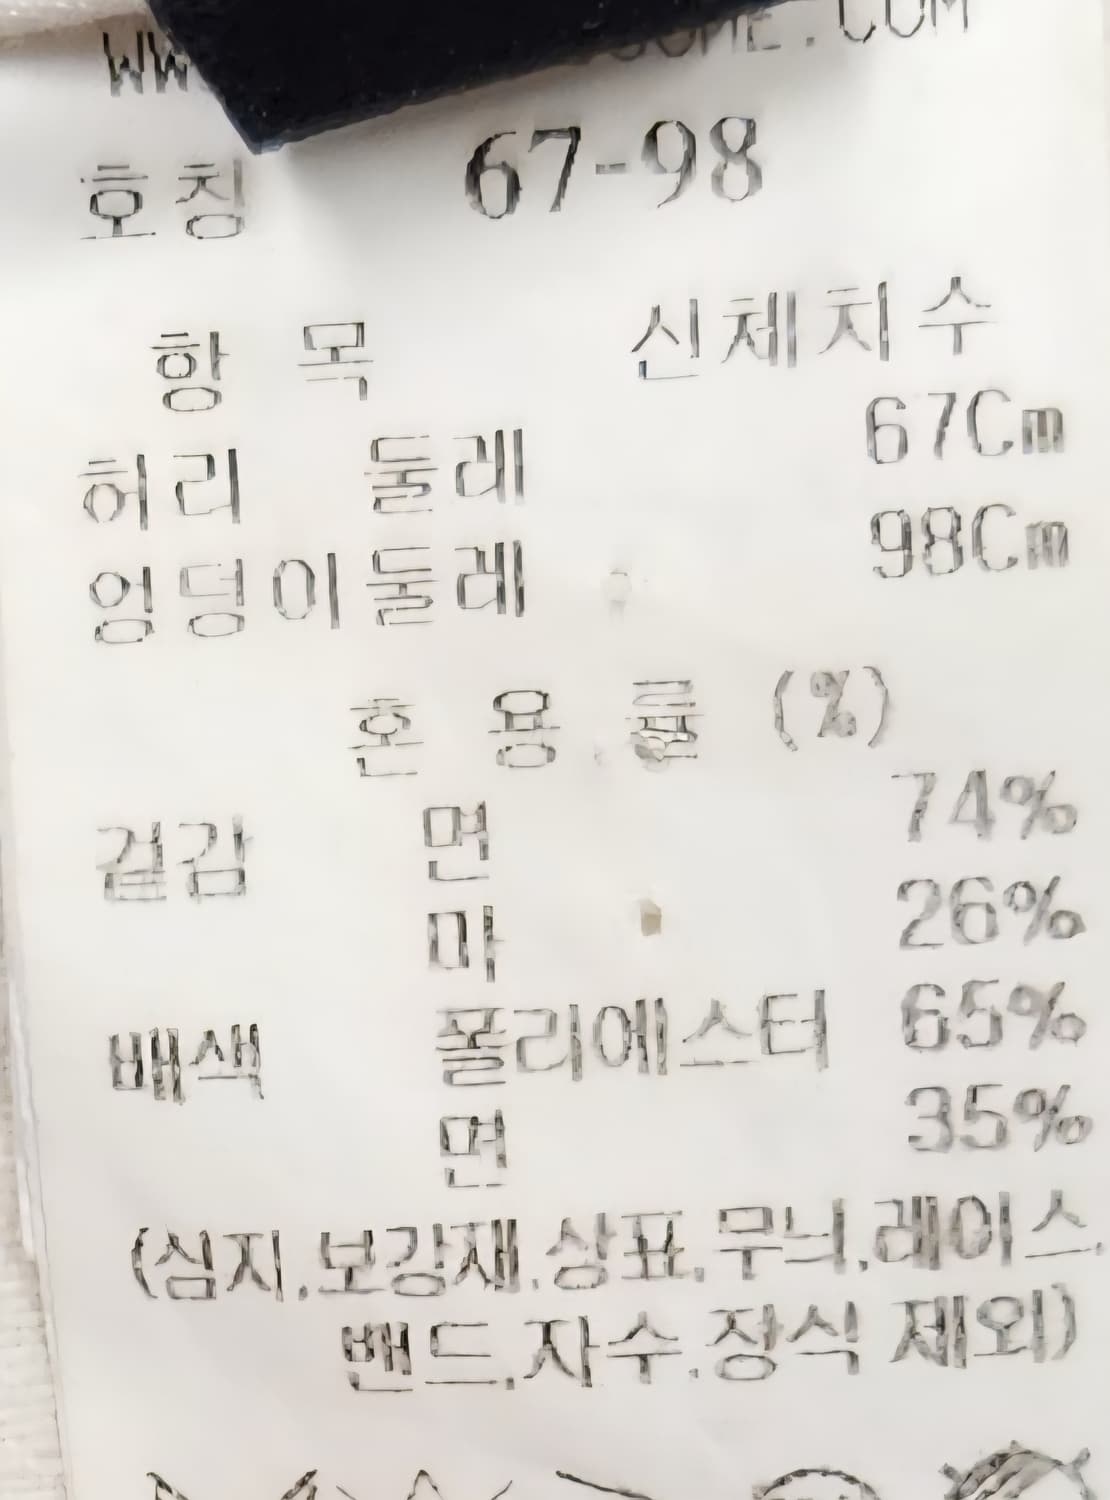 호칭 67-98
항 목 신체치수
허리 둘레 67Cm
엉덩이둘레 98Cm
혼 용 률 (%)
겉감 면 74%
마 26%
배색 폴리에스터 65%
면 35%
(심지,보강재,상표,무늬,레이스,
밴드,자수,장식 제외)